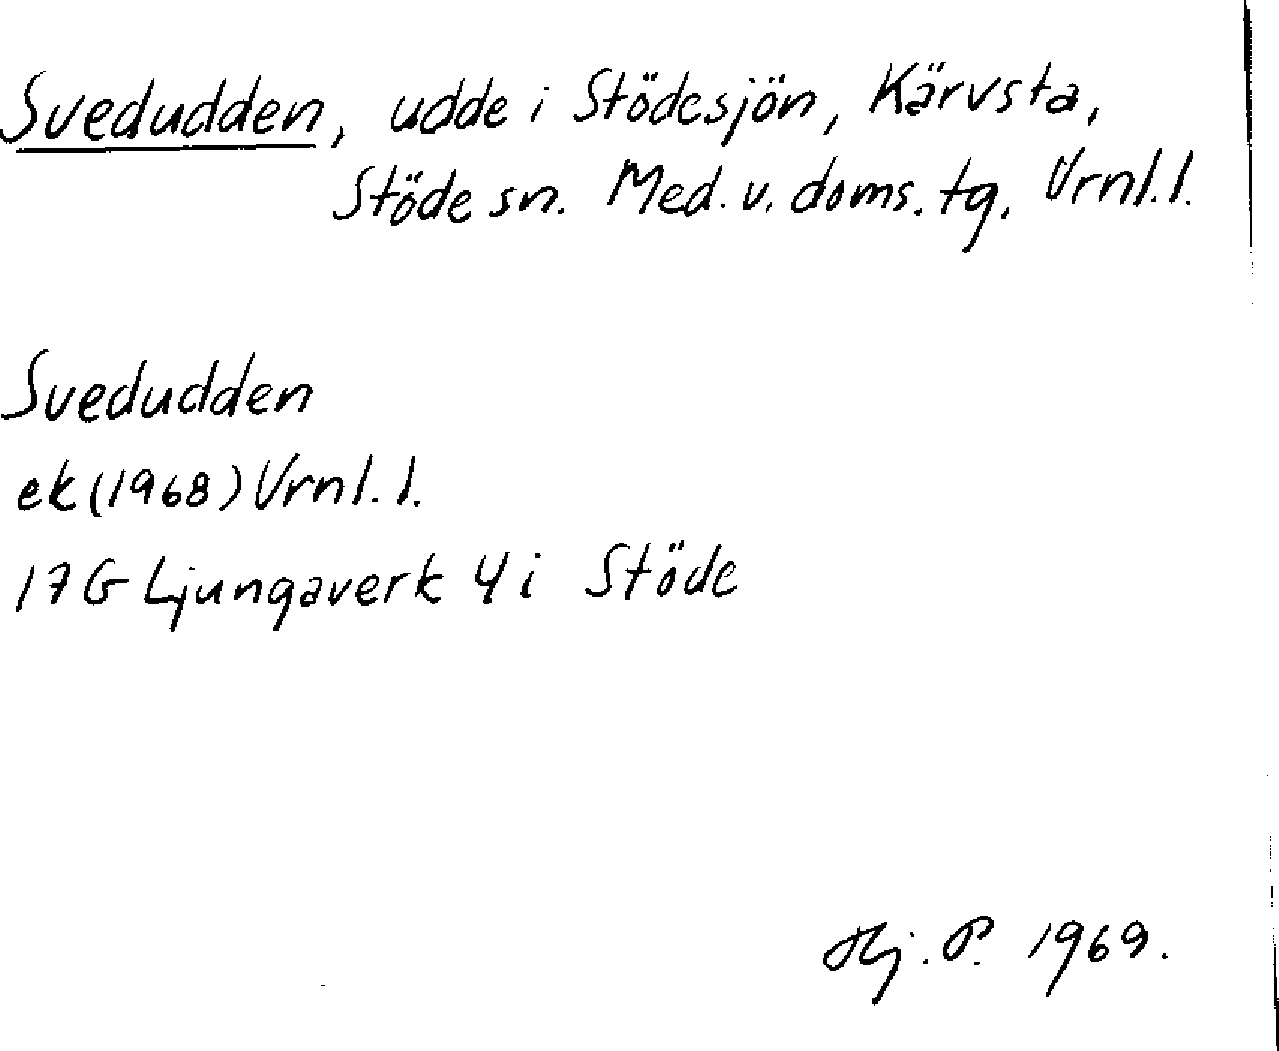 Svedudden, udde i Stödesjön, Kärvsta,
Stöde sn. Med. v. doms. tg. Vrnl. l.
Svedudden
ek (1968) Vrnl. l.
17 G Ljungaverk 4 i Stöde
Hj. P. 1969.